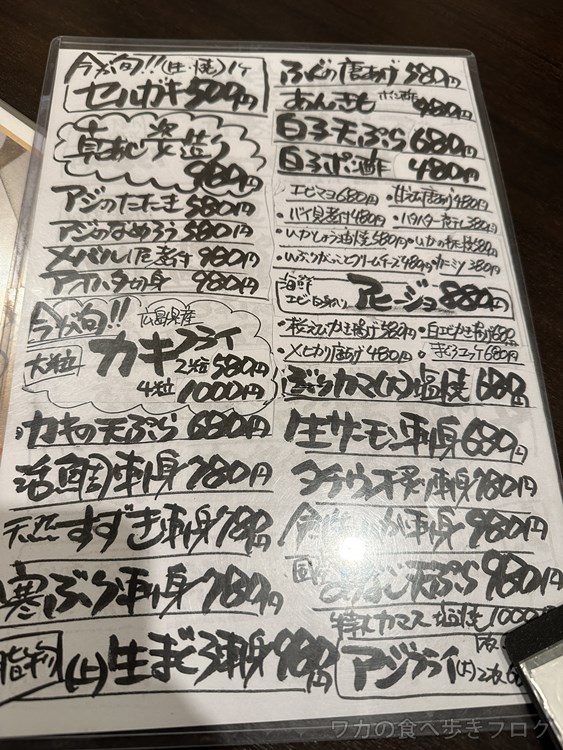 今が旬!!(生・焼)1ケ
セルガキ 500円
真あじ姿造り
980円
アジのたたき 580円
アジのなめろう 580円
メバル煮付 980円
アオハタ切身 980円
今が旬!! 広島県産
大粒 カキフライ
2粒 580円
4粒 1000円
カキの天ぷら 680円
活鯛刺身 780円
天然すずき刺身 780円
寒ぶり刺身 780円
脂がのり (上)生まぐろ刺身 980円
ふぐの唐あげ 580円
あんきも ポン酢 480円
白子天ぷら 680円
白子ポン酢 480円
エビマヨ 680円 ・ 唐あげ 480円
・バイ貝煮付 480円 ・ハタハタ 380円
・いかしょう油焼 580円 ・いかの 580円
・いぶりがっことクリームチーズ 480円 ・カニミソ 380円
海鮮
エビ白身入り アヒージョ 880円
・桜えびかき揚げ 580円 ・白エビかき揚げ 680円
・メヒカリ唐あげ 480円 ・まぐろユッケ 680円
ぶりカマ(大)塩焼 680円
生サーモン刺身 680円
炙り刺身 780円
いか刺身 980円
あなご天ぷら 980円
特大カマス塩焼 1000円
アジフライ(大)
ワカの食べ歩きブログ